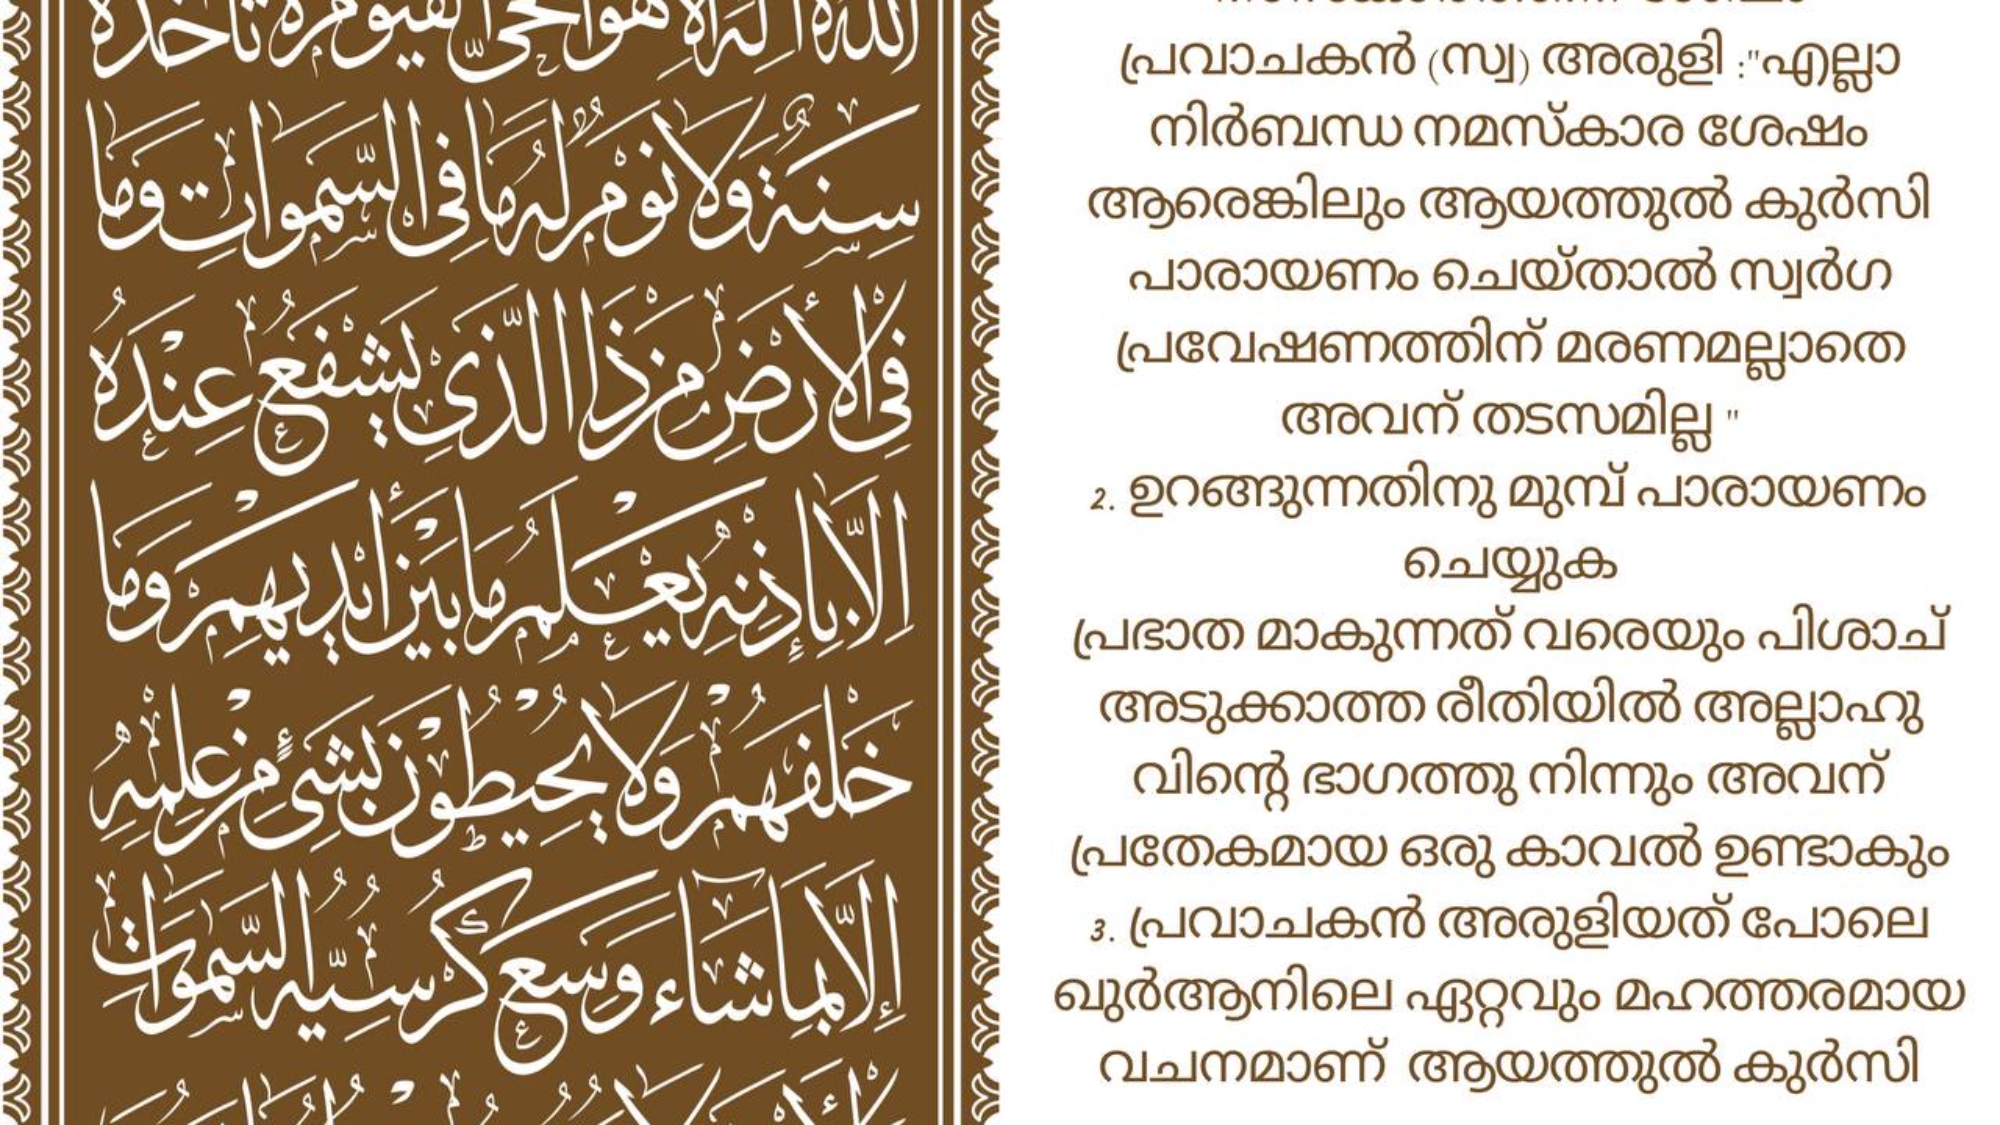 الله لا إله إلا هو الحي القيوم لا تأخذه
سنة ولا نوم له ما في السموات وما
في الأرض من ذا الذي يشفع عنده
إلا بإذنه يعلم ما بين أيديهم وما
خلفهم ولا يحيطون بشيء من علمه
إلا بما شاء وسع كرسيه السموات
പ്രവാചകൻ (സ്വ) അരുളി :"എല്ലാ
നിർബന്ധ നമസ്കാര ശേഷം
ആരെങ്കിലും ആയത്തുൽ കുർസി
പാരായണം ചെയ്താൽ സ്വർഗ
പ്രവേഷണത്തിന് മരണമല്ലാതെ
അവന് തടസമില്ല "
2. ഉറങ്ങുന്നതിനു മുമ്പ് പാരായണം
ചെയ്യുക
പ്രഭാത മാകുന്നത് വരെയും പിശാച്
അടുക്കാത്ത രീതിയിൽ അല്ലാഹു
വിന്റെ ഭാഗത്തു നിന്നും അവന്
പ്രതേകമായ ഒരു കാവൽ ഉണ്ടാകും
3. പ്രവാചകൻ അരുളിയത് പോലെ
ഖുർആനിലെ ഏറ്റവും മഹത്തരമായ
വചനമാണ് ആയത്തുൽ കുർസി